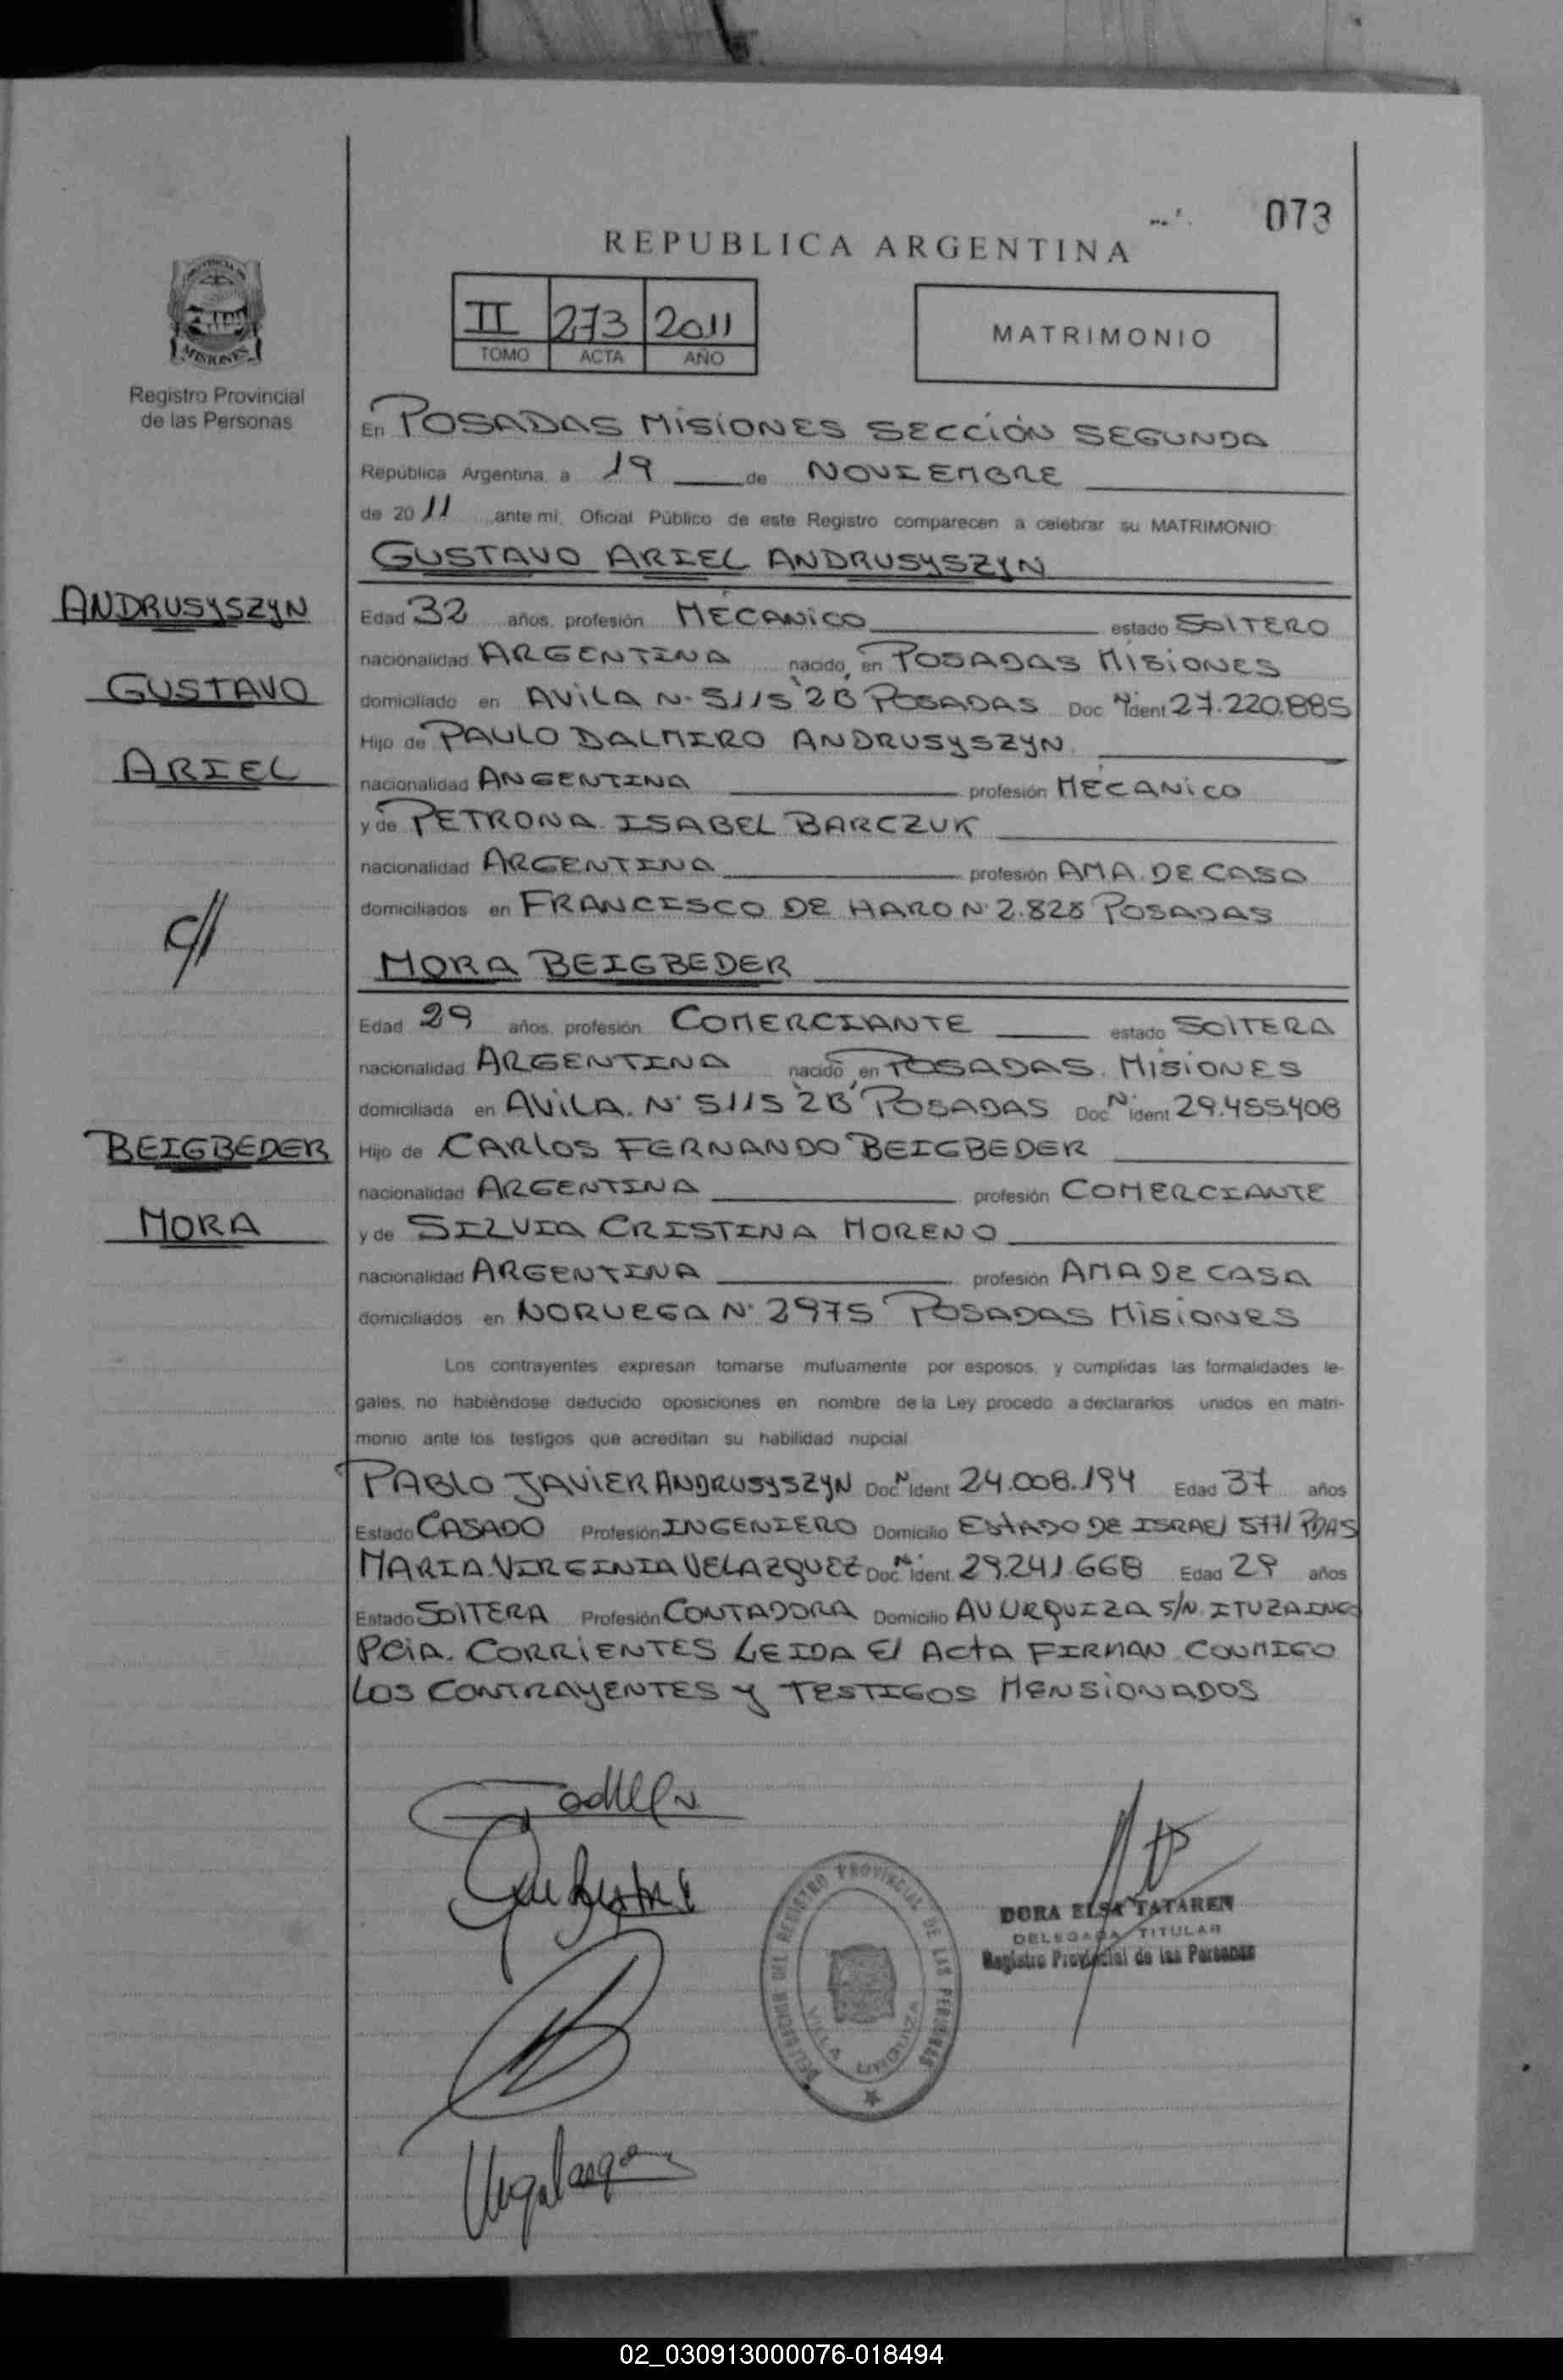 073
REPUBLICA ARGENTINA
II 273 2011
TOMO ACTA AÑO
MATRIMONIO
PROVINCIA DE
MISIONES
Registro Provincial
de las Personas
En POSADAS MISIONES SECCIÓN SEGUNDA
República Argentina, a 19 de NOVIEMBRE
de 2011 ante mi, Oficial Público de este Registro comparecen a celebrar su MATRIMONIO:
GUSTAVO ARIEL ANDRUSYSZYN
ANDRUSYSZYN
GUSTAVO
ARIEL
Edad 32 años, profesión MECANICO estado SOLTERO
nacionalidad ARGENTINA nacido en POSADAS MISIONES
domiciliado en AVILA N. 5115 "2B" POSADAS Doc Nº ident 27.220.885
Hijo de PAULO DALMIRO ANDRUSYSZYN
nacionalidad ANGENTINA profesión MÉCANICO
y de PETRONA ISABEL BARCZUK
nacionalidad ARGENTINA profesión AMA DE CASA
domiciliados en FRANCISCO DE HARO N. 2.828 POSADAS
MORA BEIGBEDER
Edad 29 años, profesión COMERCIANTE estado SOLTERA
nacionalidad ARGENTINA nacido en POSADAS. MISIONES
domiciliada en AVILA. N. 5115 "2B" POSADAS Doc Nº ident 29.455.408
BEIGBEDER
MORA
Hijo de CARLOS FERNANDO BEIGBEDER
nacionalidad ARGENTINA profesión COMERCIANTE
y de SILVIA CRISTINA MORENO
nacionalidad ARGENTINA profesión AMA DE CASA
domiciliados en NORUEGA N. 2975 POSADAS MISIONES
Los contrayentes expresan tomarse mutuamente por esposos, y cumplidas las formalidades le-
gales, no habiéndose deducido oposiciones en nombre de la Ley procedo a declararlos unidos en matri-
monio ante los testigos que acreditan su habilidad nupcial
PABLO JAVIER ANDRUSYSZYN Doc N Ident 24.008.194 Edad 37 años
Estado CASADO Profesión INGENIERO Domicilio ESTADO DE ISRAEL 5771 PDAS
MARIA VIRGINIA VELAZQUEZ Doc N Ident 29.241.668 Edad 29 años
Estado SOLTERA Profesión CONTADORA Domicilio AV URQUIZA S/N. ITUZAINGO
PCIA. CORRIENTES LEIDA El ACTA FIRMAN CONMIGO
LOS CONTRAYENTES Y TESTIGOS MENSIONADOS
DELEGACION DEL REGISTRO PROVINCIAL DE LAS PERSONAS
VILLA URQUIZA
DORA ELSA TATAREN
DELEGADA TITULAR
Registro Provincial de las Personas
02_030913000076-018494